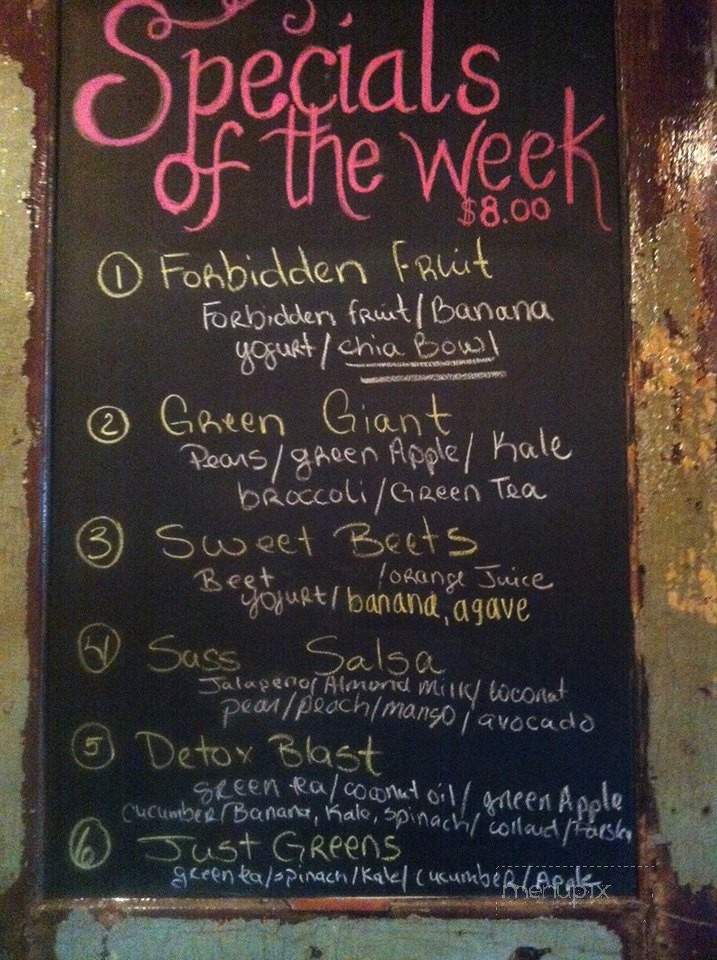 Specials
of the week
$8.00
1 Forbidden Fruit
Forbidden fruit/Banana
yogurt/chia Bowl
2 Green Giant
Pears/green Apple/Kale
broccoli/Green Tea
3 Sweet Beets
Beet /orange Juice
yogurt/banana, agave
4 Sass Salsa
Jalapeno/Almond milk/coconut
pear/peach/mango/avocado
5 Detox Blast
green tea/coconut oil/green Apple
cucumber/Banana, Kale, spinach/collard/
6 Just Greens
green tea/spinach/Kale/cucumber/Apple
menupix